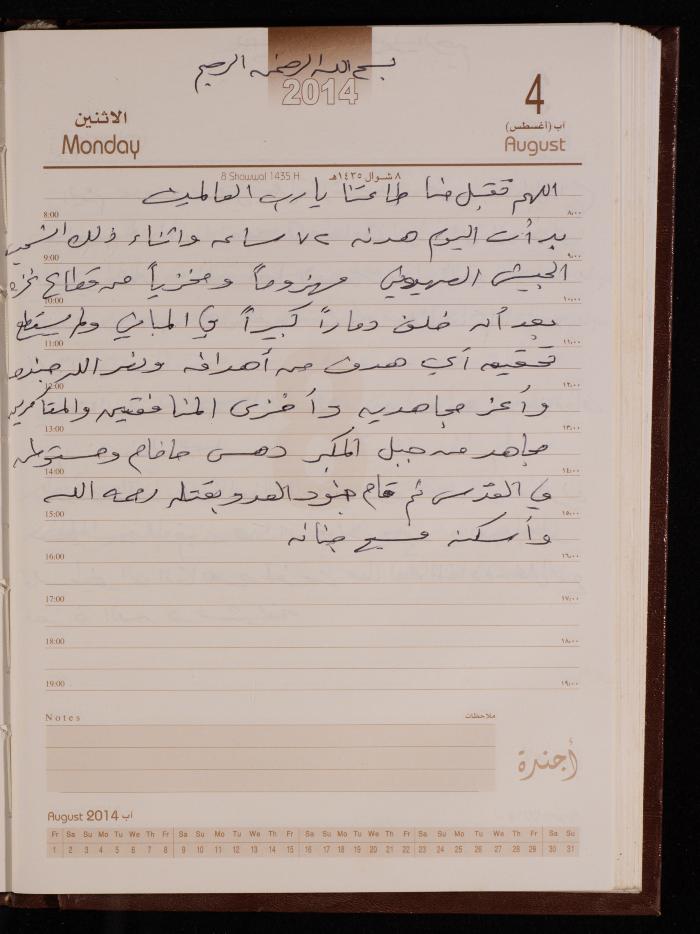 بسم الله الرحمن الرحيم
2014
4
الاثنين
آب (أغسطس)
Monday
August
8 Shawwal 1435 H
٨ شوال ١٤٣٥هـ
اللهم تقبل منا طاعتنا يا رب العالمين
8:00 ٨,٠٠
بدأت اليوم هدنه ٧٢ ساعه واثناء ذلك انسحب
9:00 ٩,٠٠
الجيش الصهيوني مهزوماً ومخزياً من قطاع غزه
10:00 ١٠,٠٠
بعد أن خلف دماراً كبيراً في المباني ولم يستطع
11:00 ١١,٠٠
تحقيق أي هدف من أهدافه ونصر الله جنده
12:00 ١٢,٠٠
وأعز مجاهديه وأخزى المنافقين
13:00 ١٣,٠٠
مجاهد من جبل المكبر دهس حاخام ومستوطن
14:00 ١٤,٠٠
في القدس ثم قام جنود العدو بقتله رحمه الله
15:00 ١٥,٠٠
وأسكنه فسيح جنانه
16:00 ١٦,٠٠
17:00 ١٧,٠٠
18:00 ١٨,٠٠
19:00 ١٩,٠٠
Notes ملاحظات
أجندة
August 2014 آب
Fr Sa Su Mo Tu We Th Fr Sa Su Mo Tu We Th Fr Sa Su Mo Tu We Th Fr Sa Su Mo Tu We Th Fr Sa Su
1 2 3 4 5 6 7 8 9 10 11 12 13 14 15 16 17 18 19 20 21 22 23 24 25 26 27 28 29 30 31